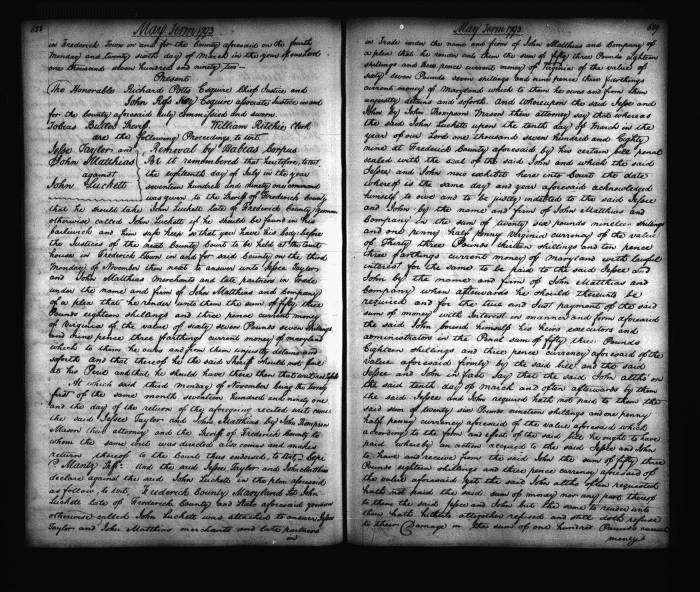 638
May Term 1793
in Frederick Town in and for the County aforesaid on the fourth
Monday and twenty sixth day of March in the year of our Lord
one thousand seven hundred and ninety two —
Present
The Honorable Richard Potts Esquire Chief Justice and
John Ross Key Esquire associate Justice in and
for the County aforesaid duly Commissioned and sworn
Tobias Butler Sheriff. William Ritchie Clerk
are the following Proceedings, to wit.
Jesse Taylor and
John Matthias
against
John Luckett
Removal by Habeas Corpus
Be it remembered that heretofore, to wit,
the eighteenth day of July in the year
seventeen hundred and ninety one command
was given to the Sheriff of Frederick County
that he should take John Luckett late of Frederick County yeoman
otherwise called John Luckett if he should be found in his
bailiwick and him safe keep so that you have his body before
the Justices of the next County Court to be held at the Court
house in Frederick Town in and for said County on the third
Monday of November then next to answer unto Jesse Taylor
and John Matthias Merchants and late partners in trade
under the name and firm of John Matthias and Company
of a plea that he render unto them the sum of fifty three
Pounds eighteen shillings and three pence current money
of Virginia of the value of sixty seven Pounds seven shillings
and nine pence three farthings current money of maryland
which to them he owes and from them unjustly detains and
soforth And that thereof he the said Sheriff should not fail
at his Peril and that he should have there then that writ
At which said third monday of November being the twenty
first of the same month seventeen hundred and ninety one
and the day of the return of the aforegoing recited writ comes
the said Jesse Taylor and John Matthias by John Thompson
Mason their attorney and the Sheriff of Frederick County to
whom the same writ was directed also comes and makes
return thereof to the Court thus endorsed, to wit — Cepi
P. Mantz Shff. And the said Jesse Taylor and John Matthias
declare against the said John Luckett in the plea aforesaid
as follow, to wit, Frederick County Maryland Sct John
Luckett late of Frederick County and State aforesaid yeoman
otherwise called John Luckett was attached to answer Jesse
Taylor and John Matthias merchants and late partners
in
May Term 1793
639
in Trade under the name and firm of John Matthias and Company of
a plea that he render unto them the sum of fifty three Pounds eighteen
shillings and three pence current money of Virginia of the value of
sixty seven Pounds seven shillings and nine pence three farthings
current money of Maryland which to them he owes and from them
unjustly detains and soforth. And whereupon the said Jesse and
John by John Thompson Mason their attorney say that whereas
the said John Luckett upon the tenth day of March in the
year of our Lord one thousand seven hundred and Eighty
nine at Frederick County aforesaid by his certain bill penal
sealed with the seal of the said John and which the said
Jesse and John now exhibit here into Court the date
whereof is the same day and year aforesaid acknowledged
himself to owe and to be justly indebted to the said Jesse
and John by the name and firm of John Matthias and
Company in the sum of twenty six pounds nineteen shillings
and one penny half penny Virginia currency of the value
of Thirty three Pounds thirteen shillings and ten pence
three farthings current money of Maryland with lawful
interest for the same to be paid to the said Jesse and
John by the name and firm of John Matthias and
Company when afterwards he should thereunto be
required and for the true and Just payment of the said
sum of money with Interest in manner and form aforesaid
the said John bound himself his heirs executors and
administrators in the Penal sum of fifty three Pounds
Eighteen shillings and three pence currency aforesaid of the
value aforesaid firmly by the said bill and the said
Jesse and John in fact say that the said John altho' on
the said tenth day of March and often afterwards by them
the said Jesse and John required hath not paid to them the
said sum of twenty six Pounds nineteen shillings and one penny
half penny currency aforesaid of the value aforesaid which
according to the form and effect of the said bill he ought to have
paid whereby an action accrued to the said Jesse and John
to have and receive from the said John the sum of fifty three
Pounds eighteen shillings and three pence currency aforesaid of
the value aforesaid yet the said John altho' often requested
hath not paid the said sum of money nor any part thereof
to them the said Jesse and John but the same to render unto
them hath hitherto altogether refused and still doth refuse
to their Damage in the sum of one hundred Pounds current
money